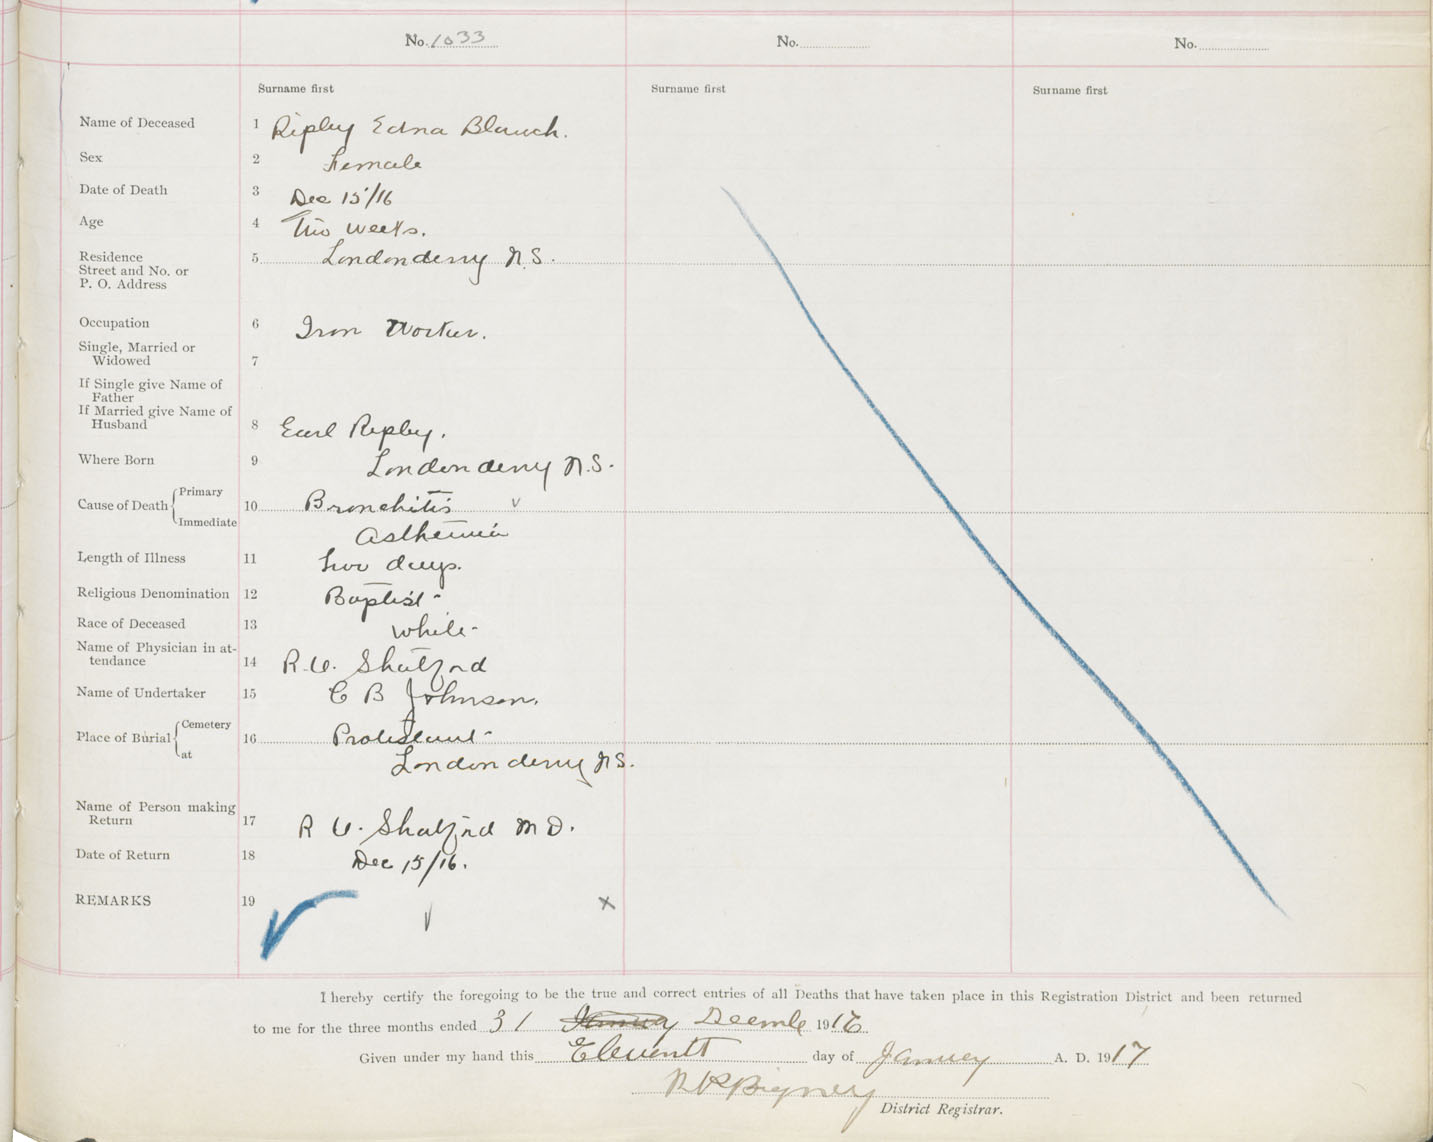 No. 1033 No. No.
Surname first Surname first Surname first
Name of Deceased 1 Ripley Edna Blanch.
Sex 2 Female
Date of Death 3 Dec 15/16
Age 4 Two weeks.
Residence 5 Londonderry N.S.
Street and No. or
P. O. Address
Occupation 6 Iron Worker.
Single, Married or
Widowed 7
If Single give Name of
Father
If Married give Name of
Husband 8 Earl Ripley.
Where Born 9 Londonderry N.S.
Cause of Death Primary 10 Bronchitis
Immediate Asthenia
Length of Illness 11 two days.
Religious Denomination 12 Baptist -
Race of Deceased 13 White -
Name of Physician in at-
tendance 14 R. U. Shatford
Name of Undertaker 15 C B Johnson.
Place of Burial Cemetery 16 Protestant -
at Londonderry N.S.
Name of Person making
Return 17 R U. Shatford M D.
Date of Return 18 Dec 15/16.
REMARKS 19
I hereby certify the foregoing to be the true and correct entries of all Deaths that have taken place in this Registration District and been returned
to me for the three months ended 31 January Decmbe 1916
Given under my hand this Eleventh day of January A. D. 1917
Bigney
District Registrar.